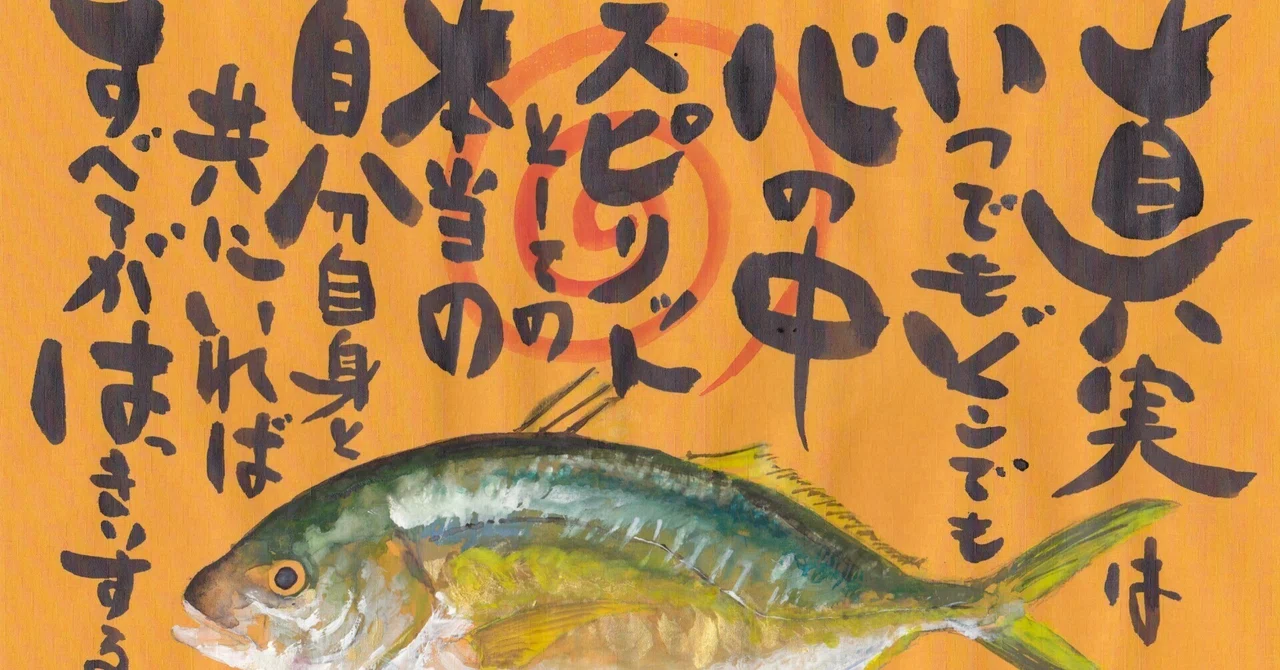 真実は
いつでもどこでも
心の中
スピリド
としての
本当の
自分自身と
共にいれば
すべてがはっきりする